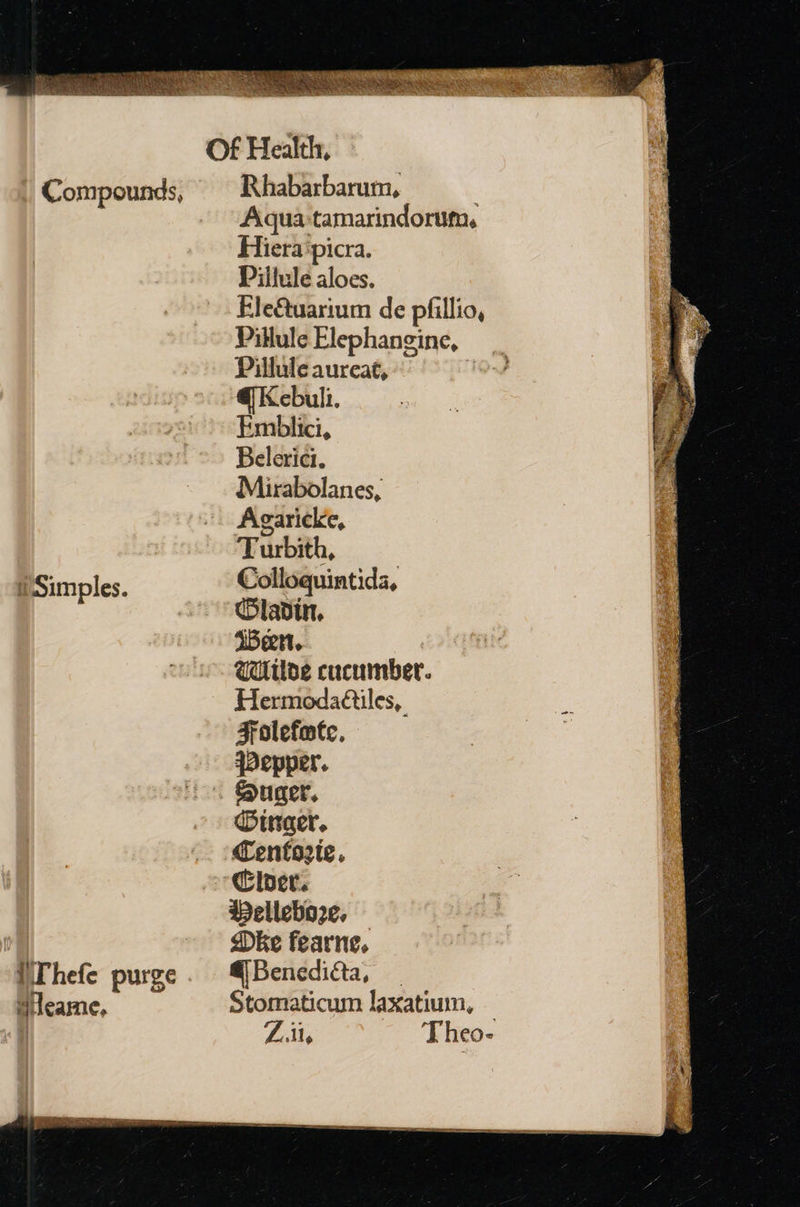 Of Health,
Compounds,
Rhabarbarum,
Aqua tamarindorum,
Hiera picra.
Pillule aloes.
Electuarium de psillio,
Pillule Elephangine,
Pillule aureat,
¶ Kebuli.
Emblici,
Belerici.
Mirabolanes,
Agaricke,
Turbith,
Simples.
Colloquintida,
Gladin,
Been.
Wilde cucumber.
Hermodactiles,
Folefote.
Pepper.
Suger.
Ginger.
Centorie.
Elder.
Hellebore.
Oke fearne,
These purge
¶ Benedicta,
fleame,
Stomaticum laxatium,
Z.ii,
Theo-